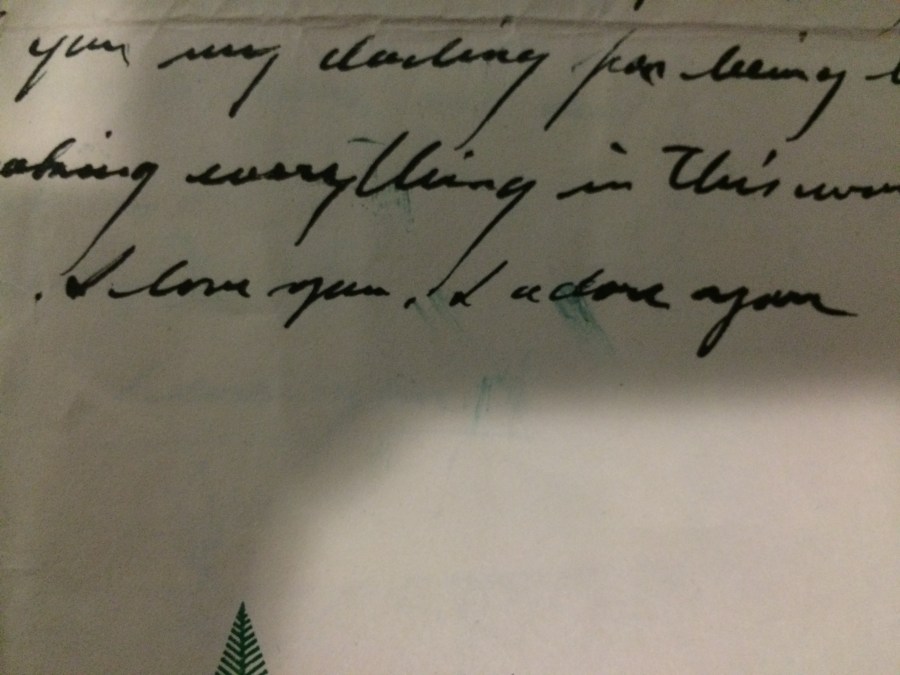 you my darling for being
making everything in this
. I love you. I adore you